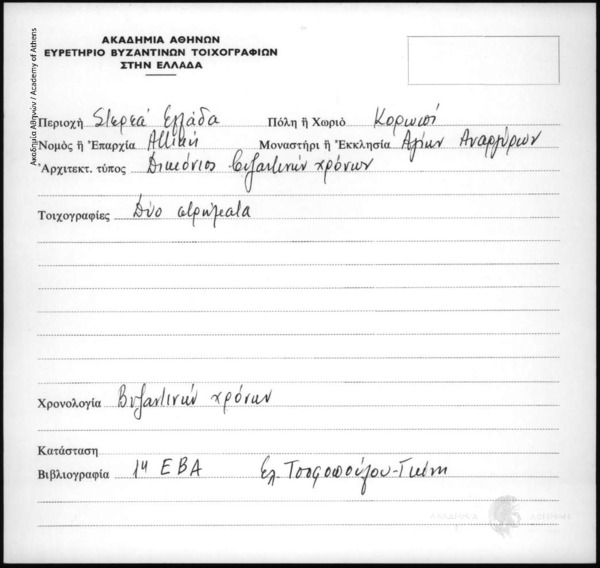 ΑΚΑΔΗΜΙΑ ΑΘΗΝΩΝ
ΕΥΡΕΤΗΡΙΟ ΒΥΖΑΝΤΙΝΩΝ ΤΟΙΧΟΓΡΑΦΙΩΝ
ΣΤΗΝ ΕΛΛΑΔΑ
Ακαδημία Αθηνών / Academy of Athens
Περιοχή Στερεά Ελλάδα Πόλη ἤ Χωριό Κορωπί
Νομὸς ἤ Ἐπαρχία Αττική Μοναστήρι ἤ Ἐκκλησία Αγίων Αναργύρων
Ἀρχιτεκτ. τύπος Δικιόνιος βυζαντινών χρόνων
Τοιχογραφίες Δύο στρώματα
Χρονολογία Βυζαντινών χρόνων
Κατάσταση
Βιβλιογραφία 1η ΕΒΑ Ελ. Τσοφοπούλου-Γκίνη
ΑΚΑΔΗΜΙΑ ΑΘΗΝΩΝ